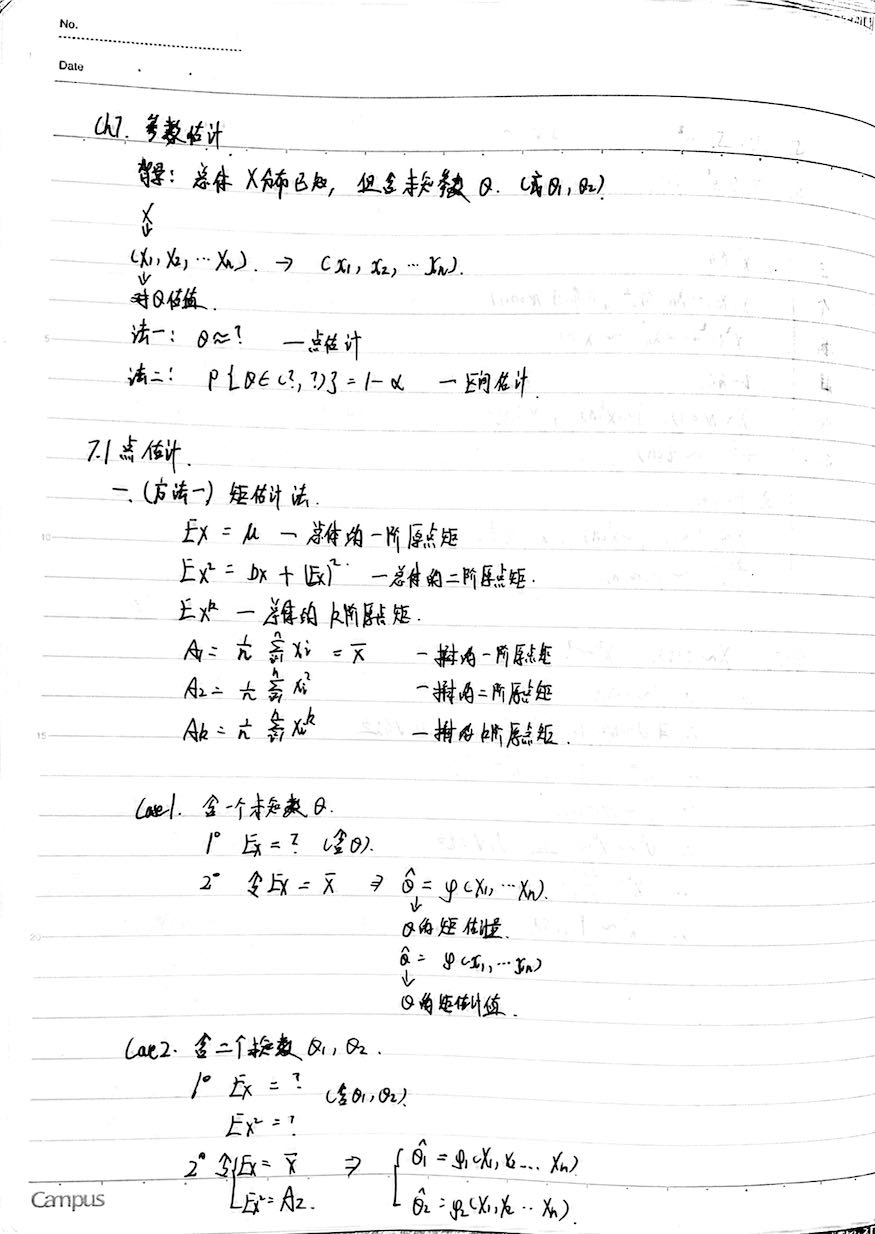 No.
Date
Ch7. 参数估计
背景: 总体 X分布已知, 但含未知参数 θ. (或θ1, θ2)
X
↓
(X1, X2, … Xn). → (x1, x2, … xn).
↓
对θ估值.
法一: θ≈? — 点估计
法二: P{θ∈(?, ?)} = 1-α — 区间估计
5
7.1 点估计.
一. (方法一) 矩估计法.
EX = μ — 总体的一阶原点矩
10
EX² = DX + (EX)². — 总体的二阶原点矩.
EX^k — 总体的k阶原点矩.
A1 = 1/n Σ(i=1..n) Xi = X̄ — 样本的一阶原点矩
A2 = 1/n Σ(i=1..n) Xi² — 样本的二阶原点矩
Ak = 1/n Σ(i=1..n) Xi^k — 样本的k阶原点矩.
15
Case1. 含一个未知参数 θ.
1° EX = ? (含θ).
2° 令EX = X̄ ⇒ θ̂ = φ(X1, … Xn).
↓
θ的矩估计量.
20
θ̂ = φ(x1, … xn)
↓
θ的矩估计值.
Case2. 含二个未知参数 θ1, θ2.
1° EX = ? (含θ1, θ2)
EX² = ?
2° 令{EX = X̄ ⇒ { θ̂1 = φ1(X1, X2 … Xn)
EX² = A2. θ̂2 = φ2(X1, X2 … Xn).
Campus